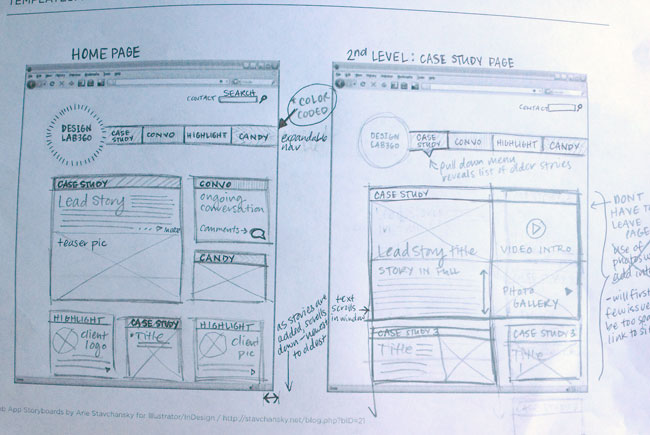 HOME PAGE
SEARCH
CONTACT
DESIGN
LAB360
CASE
STUDY
CONVO
HIGHLIGHT
CANDY
* COLOR
CODED
expandable
nav
CASE STUDY
Lead Story
MORE
teaser pic
CONVO
ongoing
conversation
comments →
CANDY
HIGHLIGHT
client
logo
CASE STUDY
Title
HIGHLIGHT
client
pic
as stories are
added, scrolls
down
to oldest
2nd LEVEL: CASE STUDY PAGE
CONTACT
DESIGN
LAB360
CASE
STUDY
CONVO
HIGHLIGHT
CANDY
pull down menu
reveals list of older stories
CASE STUDY
Lead Story Title
STORY IN FULL
VIDEO INTRO
PHOTO
GALLERY
text
scrolls
in window
CASE STUDY 2
Title
CASE STUDY 3
Title
DONT
HAVE TO
LEAVE
PAGE
use of
photos
add
will first
few issues
be too
link to
App Storyboards by Arie Stavchansky for Illustrator/InDesign / http://stavchansky.net/blog.php?bID=21